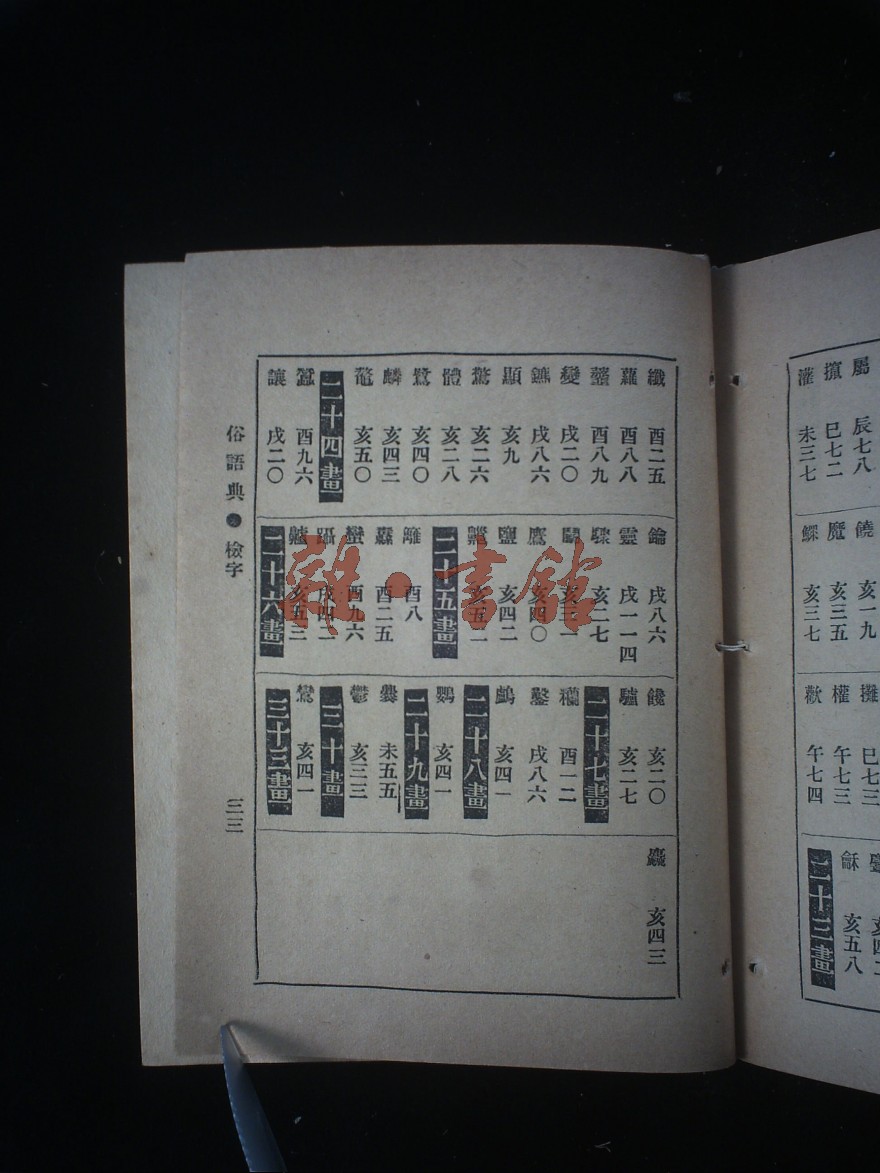 屬 辰七八
攛 巳七二
灌 未三七
饒 亥一九
魔 亥三五
鰥 亥三七
攤 巳七三
權 午七三
歡 午七四
亥四二
龢 亥五八
二十三畫
纖 酉二五
蘿 酉八八
酉八九
變 戌二〇
鑣 戌八六
顯 亥九
驚 亥二六
體 亥二八
鷺 亥四〇
麟 亥四三
鼇 亥五〇
二十四畫
蠶 酉九六
讓 戌二〇
鑰 戌八六
靈 戌一一四
驟 亥二七
鬭 亥三一
鷹 亥四〇
鹽 亥四二
亥五二
二十五畫
籬 酉八
纛 酉二五
蠻 酉九六
躡 戌四二
亥五三
二十六畫
饞 亥二〇
驢 亥二七
二十七畫
酉一二
鑿 戌八六
鸕 亥四一
二十八畫
鸚 亥四一
二十九畫
爨 未五五
鬱 亥三三
三十畫
鸞 亥四一
三十三畫
麤 亥四三
俗語典●檢字
二三
雜·書館